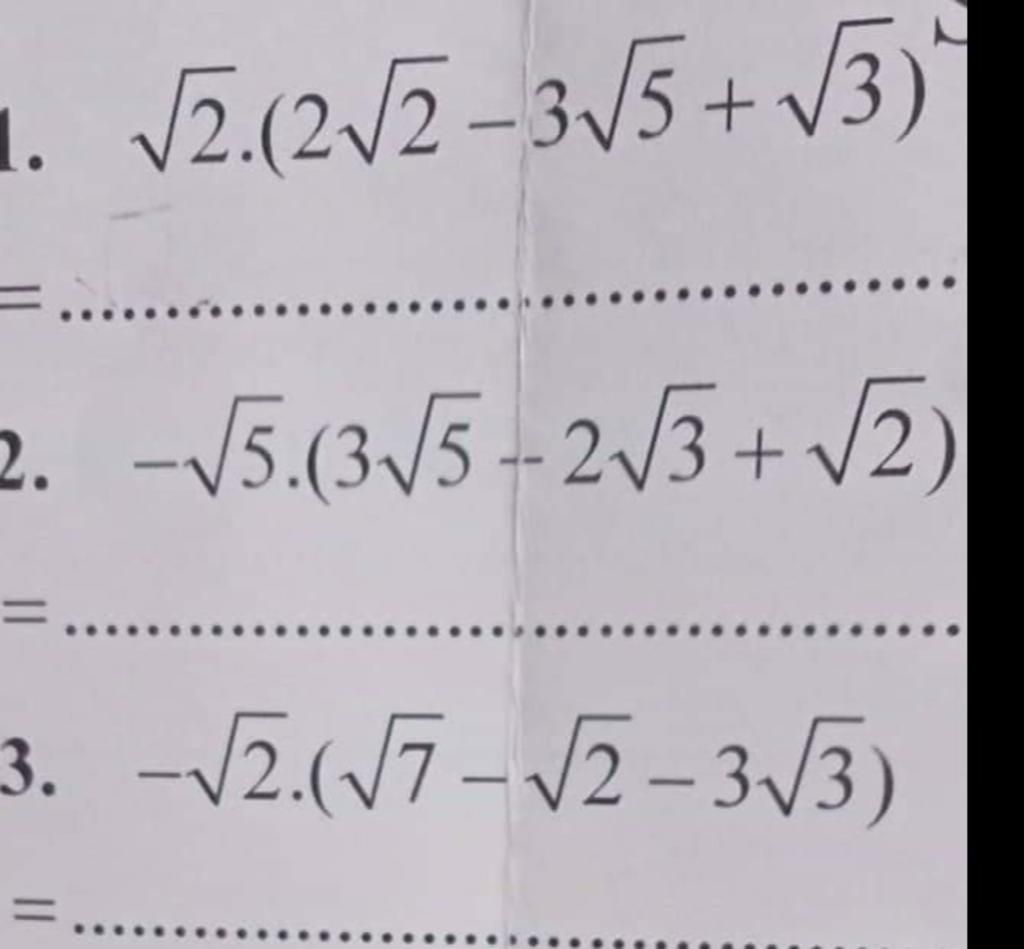 1. √2.(2√2 – 3√5 + √3)
= ........................................
2. –√5.(3√5 – 2√3 + √2)
= ........................................
3. –√2.(√7 – √2 – 3√3)
= ........................................